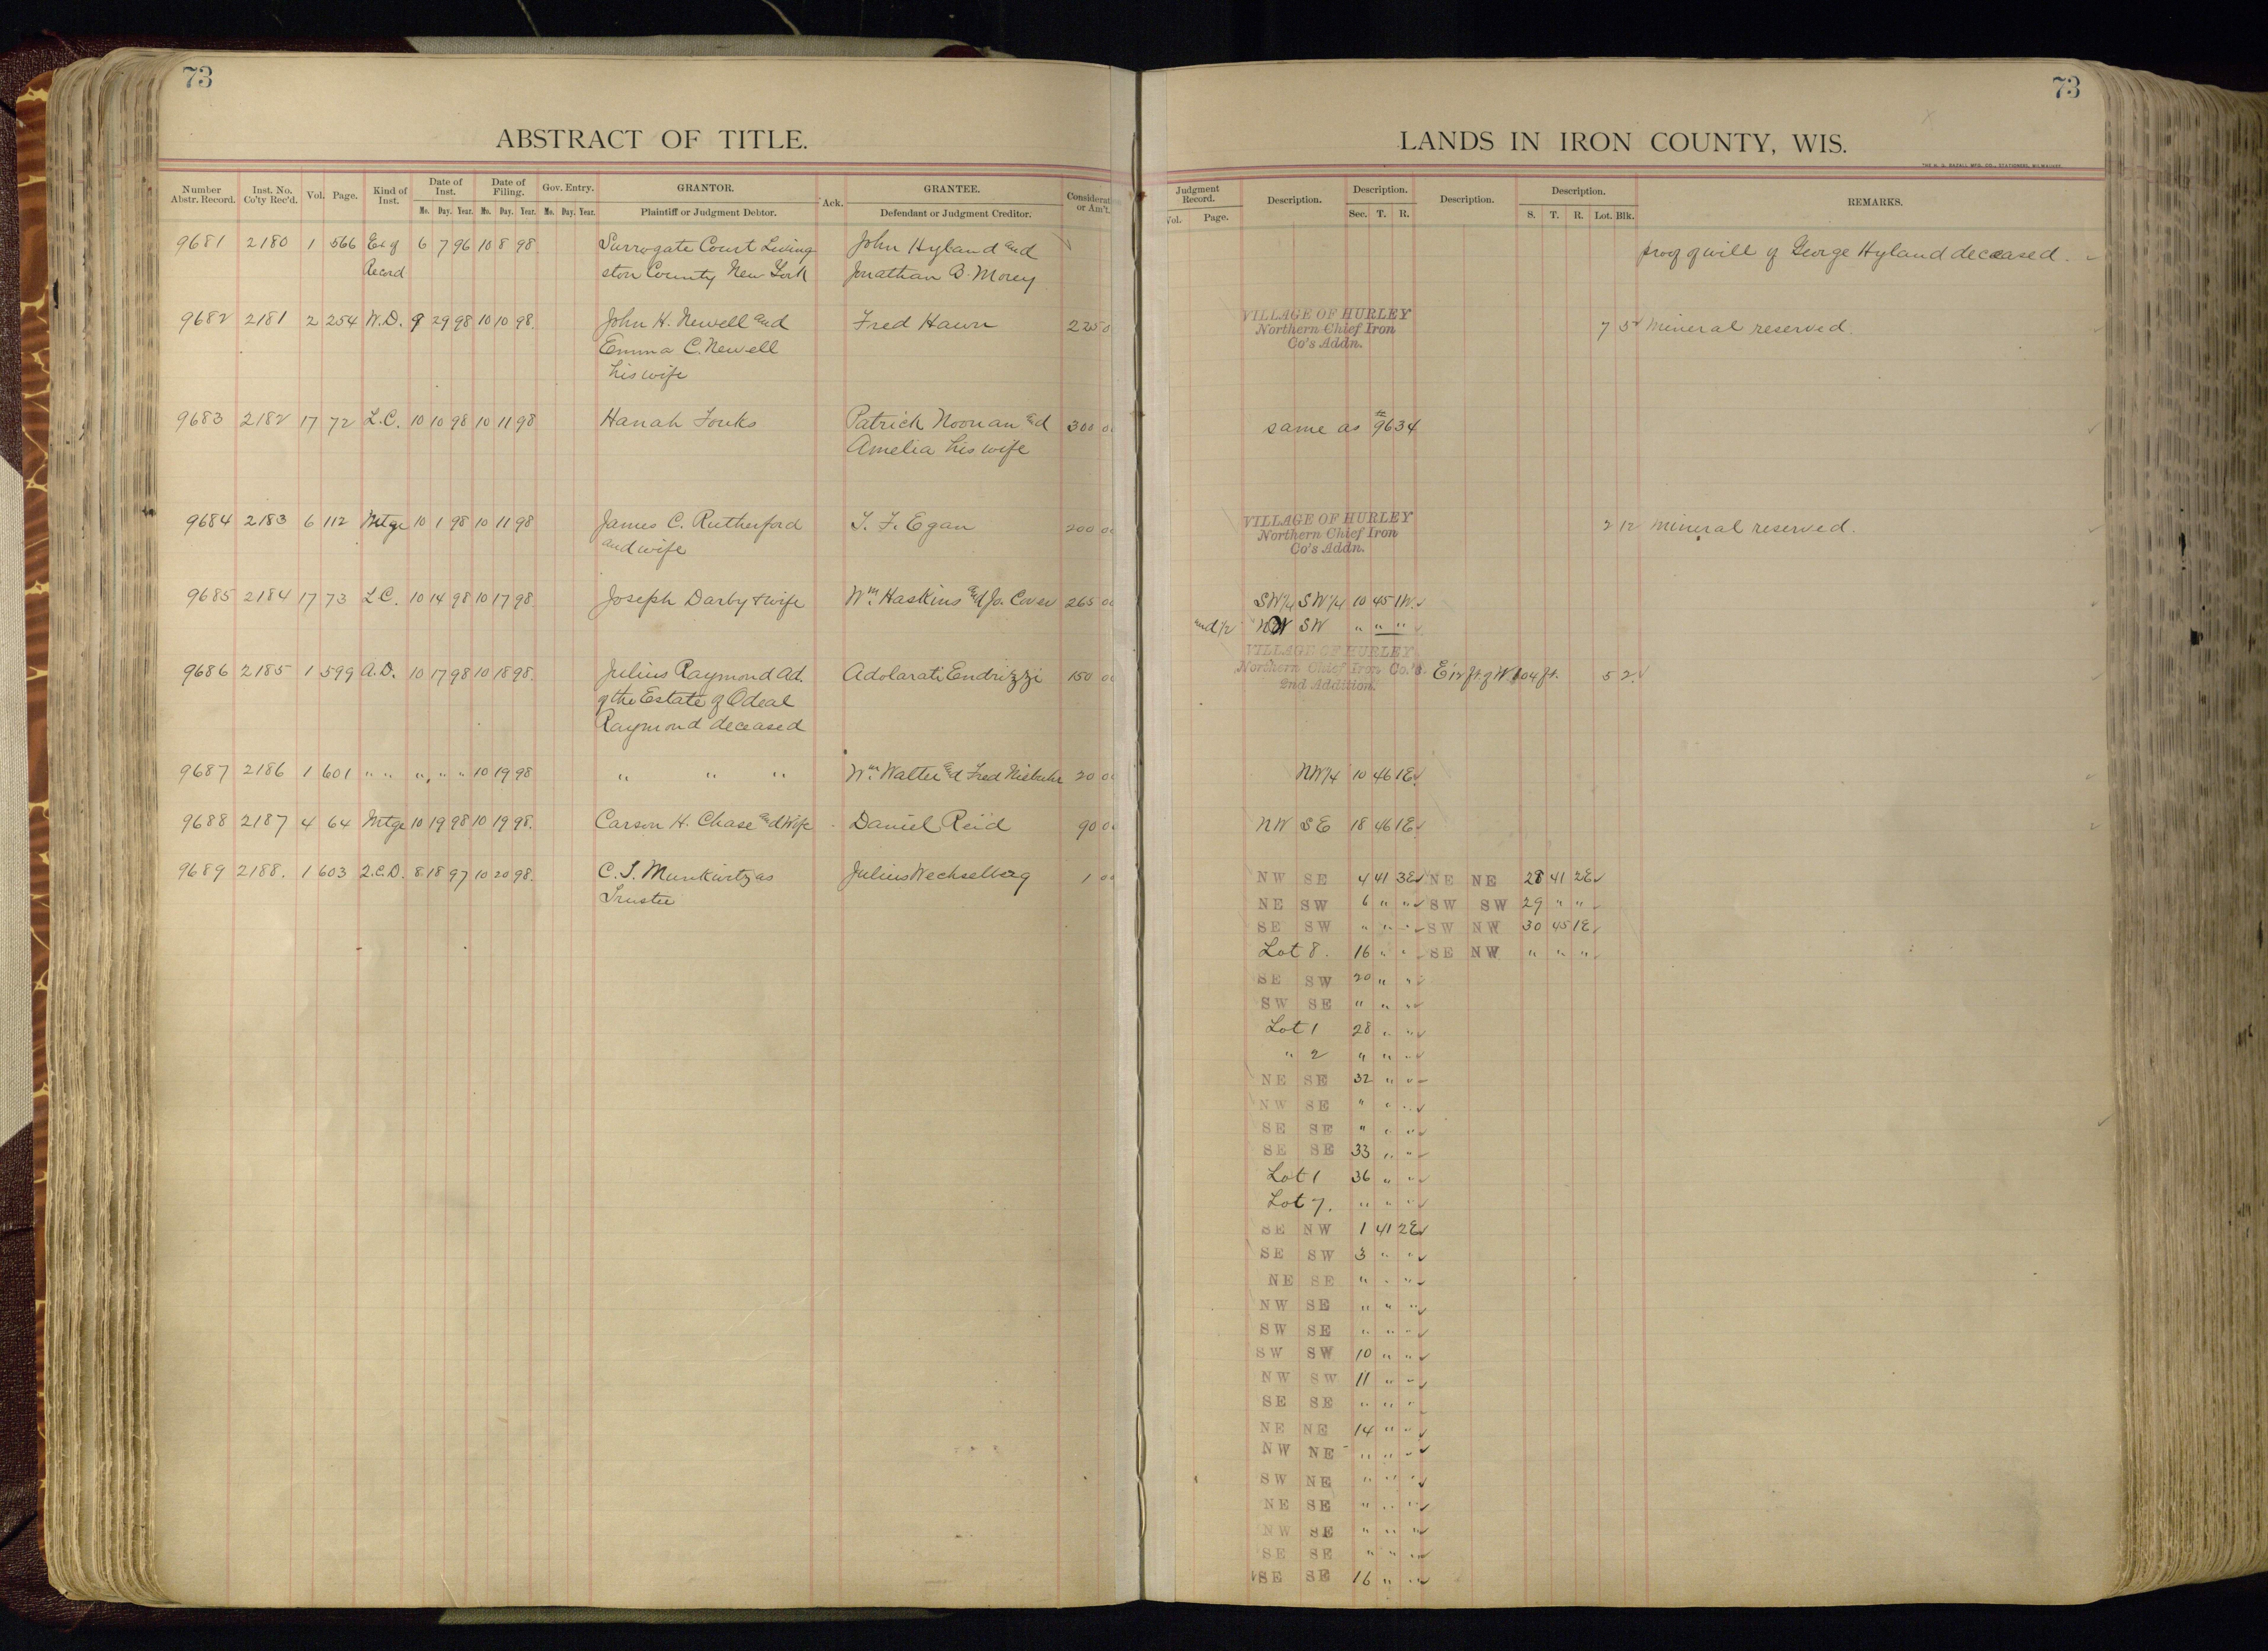 73
ABSTRACT OF TITLE.
Number Abstr. Record. Inst. No. Co'ty Rec'd. Vol. Page. Kind of Inst. Date of Inst. Date of Filing. Gov. Entry. GRANTOR. Ack. GRANTEE. Considerat or Am't.
Mo. Day. Year. Mo. Day. Year. Mo. Day. Year. Plaintiff or Judgment Debtor. Defendant or Judgment Creditor.
9681 2180 1 566 Ex of 6 7 96 10 8 98 Surrogate Court Living John Hyland and
Record ston County New York Jonathan B. Morey
9682 2181 2 254 W.D. 9 29 98 10 10 98. John H. Newell and Fred Hawn 225 0
Emma C. Newell
his wife
9683 2182 17 72 L.C. 10 10 98 10 11 98 Hanah Fonks Patrick Noonan and 300 0
Amelia his wife
9684 2183 6 112 Mtge 10 1 98 10 11 98 James C. Rutherford T. F. Egan 200 00
and wife
9685 2184 17 73 L.C. 10 14 98 10 17 98 Joseph Darby & wife Wm. Haskins and Jo. 265 00
9686 2185 1 599 A.D. 10 17 98 10 18 98. Julius Raymond Ad. Adolarati Endrizzi 150 00
of the Estate of Odeal
Raymond deceased
9687 2186 1 601 " " " " " 10 19 98 " " " Wm. Walter and Fred 20 00
9688 2187 4 64 Mtge 10 19 98 10 19 98. Carson H. Chase and Wife Daniel Reid 90 00
9689 2188. 1 603 2.C.D. 8 18 97 10 20 98. C. S. Munkwitz as Julius Wechselberg 1 00
Trustee
73
LANDS IN IRON COUNTY, WIS.
THE H. G. RAZALL MFG. CO., STATIONERS, MILWAUKEE
Judgment Record. Description. Description. Description. Description. REMARKS.
Vol. Page. Sec. T. R. S. T. R. Lot. Blk.
proof of will of George Hyland deceased.
VILLAGE OF HURLEY
Northern Chief Iron 7 5 mineral reserved.
Co's Addn.
same as to 9634
VILLAGE OF HURLEY
Northern Chief Iron 2 12 mineral reserved.
Co's Addn.
SW1/4 SW1/4 10 45 1W.
und 1/2 NW SW " " "
VILLAGE OF HURLEY
Northern Chief Iron Co.'s E 12 ft. of W 104 ft. 5 2.
2nd Addition.
NW1/4 10 46 1E
NW SE 18 46 1E
NW SE 4 41 3E NE NE 28 41 2E
NE SW 6 " " SW SW 29 " "
SE SW " " " SW NW 30 45 1E
Lot 8. 16 " " SE NW " " "
SE SW 20 " "
SW SE " " "
Lot 1 28 " "
" 2 " " "
NE SE 32 " "
NW SE " " "
SE SE " " "
SE SE 33 " "
Lot 1 36 " "
Lot 7. " " "
SE NW 1 41 2E
SE SW 3 " "
NE SE " " "
NW SE " " "
SW SE " " "
SW SW 10 " "
NW SW 11 " "
SE SE " " "
NE NE 14 " "
NW NE " " "
SW NE " " "
NE SE " " "
NW SE " " "
SE SE " " "
SE SE 16 " "